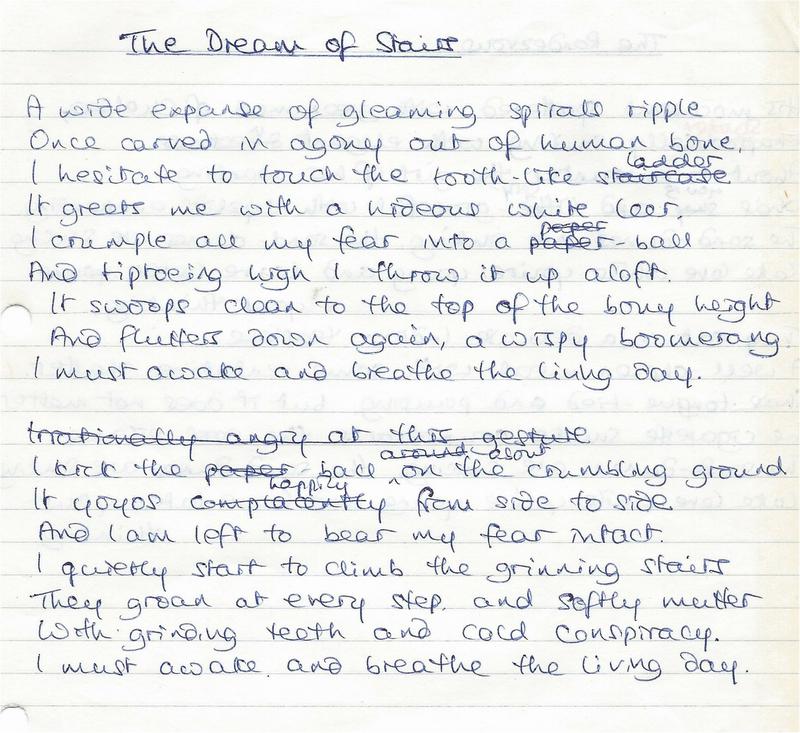 The Dream of Stairs
A wide expanse of gleaming spirals ripple
Once carved in agony out of human bone,
ladder
I hesitate to touch the tooth-like staircase
It greets me with a hideous white leer,
paper
I crumple all my fear into a paper ball
And tiptoeing high I throw it up aloft.
It swoops clean to the top of the bony height
And flutters down again, a wispy boomerang.
I must awake and breathe the living day.
Irrationally angry at this gesture
around about
I kick the paper ball ^ on the crumbling ground
happily
It yoyos complacently from side to side
And I am left to bear my fear intact.
I quietly start to climb the grinning stairs
They groan at every step. and softly mutter
With grinding teeth and cold conspiracy.
I must awake and breathe the living day.